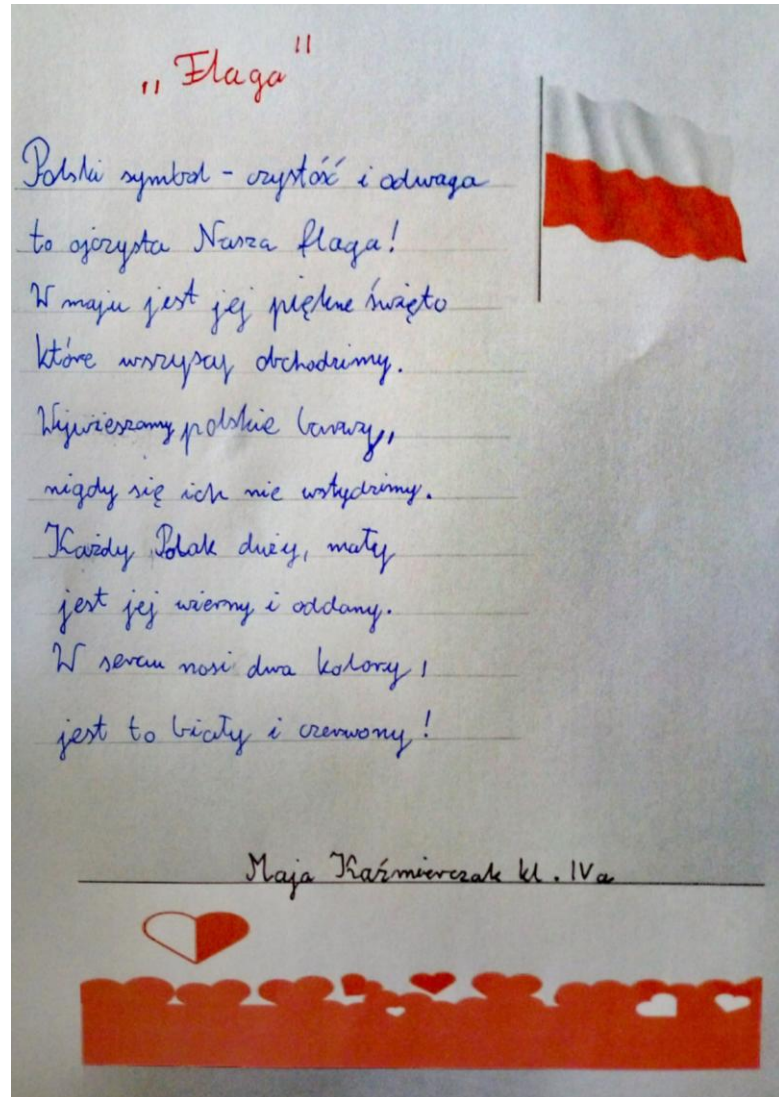 „Flaga"
Polski symbol - czystość i odwaga
to ojczysta Nasza flaga!
W maju jest jej piękne święto
które wszyscy obchodzimy.
Wywieszamy polskie barwy,
nigdy się ich nie wstydzimy.
Każdy Polak duży, mały
jest jej wierny i oddany.
W sercu nosi dwa kolory,
jest to biały i czerwony!
Maja Kaźmierczak kl. IVa